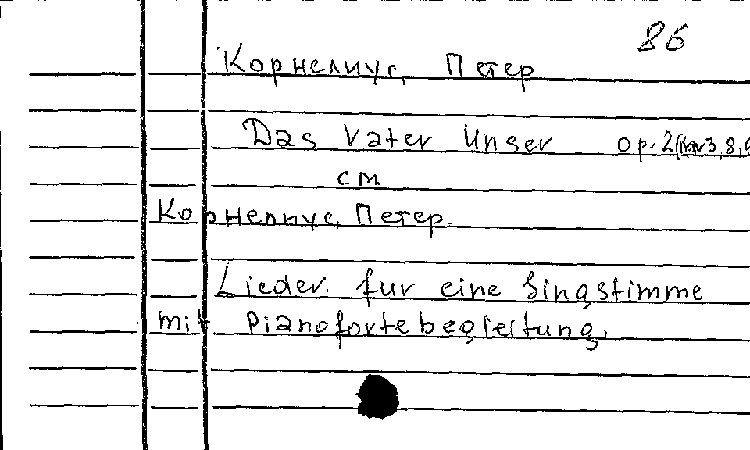 86
Корнелиус, Петер
Das Vater Unser op. 2
см
Корнелиус, Петер.
Lieder. fur eine Singstimme
mit Pianofortebegleitung.